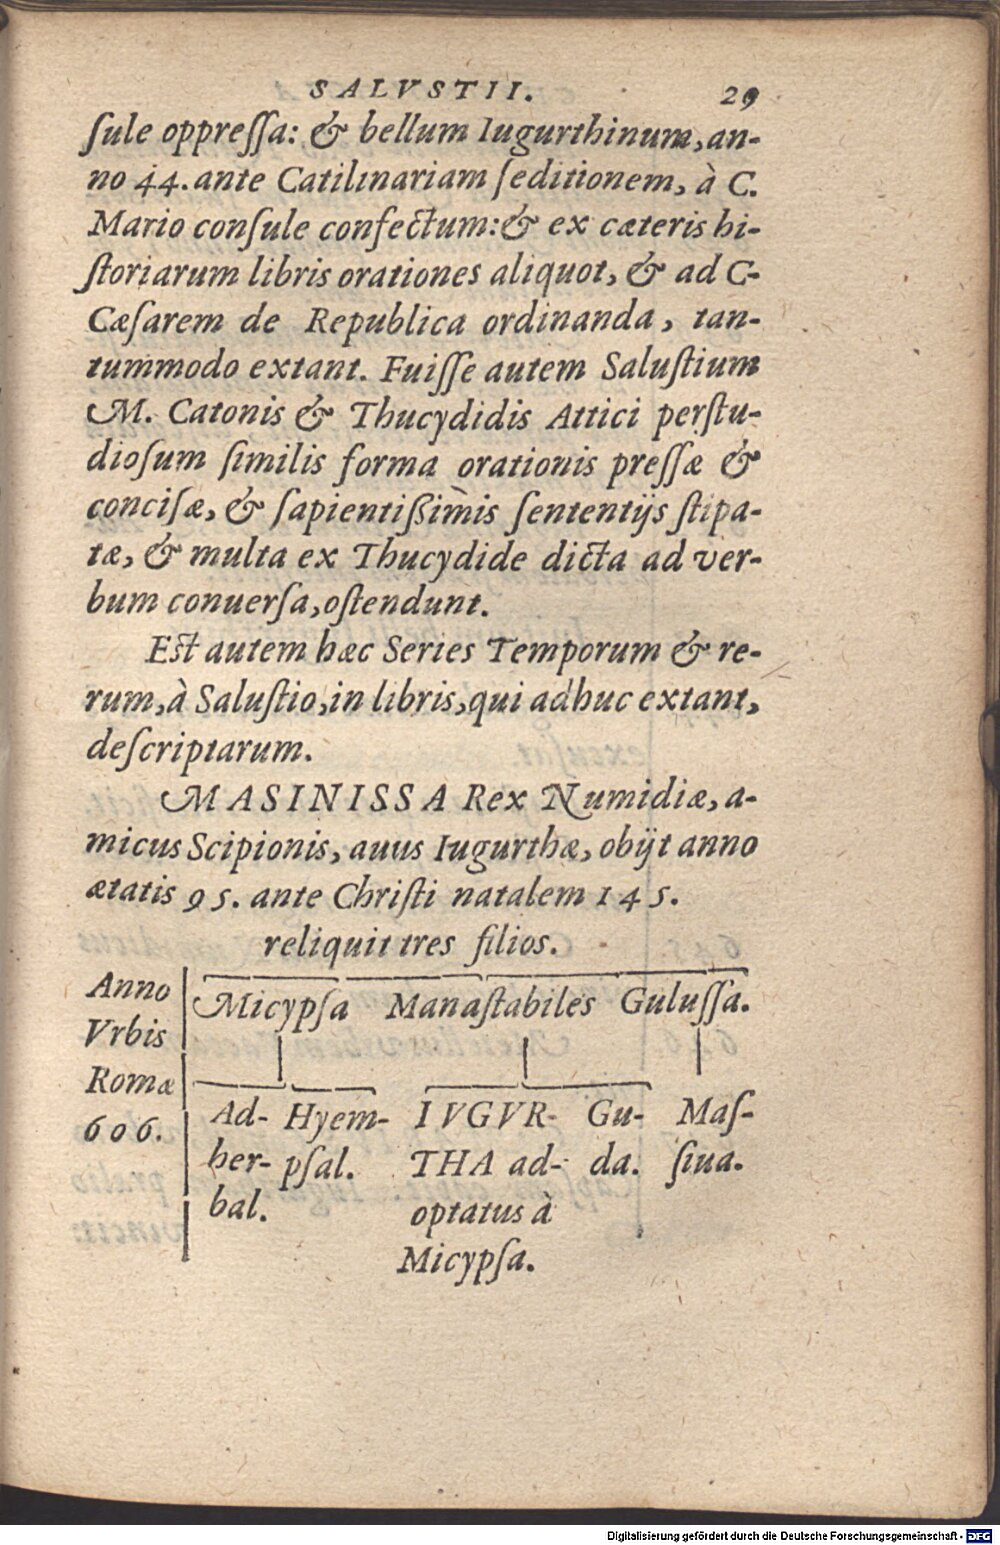 SALVSTII. 29
ſule oppreſſa: & bellum Iugurthinum, an-
no 44. ante Catilinariam ſeditionem, à C.
Mario conſule confectum: & ex cæteris hi-
ſtoriarum libris orationes aliquot, & ad C-
Cæſarem de Republica ordinanda, tan-
tummodo extant. Fuiſſe autem Saluſtium
M. Catonis & Thucydidis Attici perſtu-
dioſum ſimilis forma orationis preſſæ &
conciſæ, & ſapientißimis ſententijs ſtipa-
tæ, & multa ex Thucydide dicta ad ver-
bum conuerſa, oſtendunt.
Eſt autem hæc Series Temporum & re-
rum, à Saluſtio, in libris, qui adhuc extant,
deſcriptarum.
MASINISSA Rex Numidiæ, a-
micus Scipionis, auus Iugurthæ, obijt anno
ætatis 95. ante Chriſti natalem 145.
reliquit tres filios.
Anno
Vrbis
Romæ
606.
Micypſa Manaſtabiles Guluſſa.
Ad- Hyem- IVGVR- Gu- Maſ-
her- pſal. THA ad- da. ſiua.
bal. optatus à
Micypſa.
Digitalisierung gefördert durch die Deutsche Forschungsgemeinschaft - DFG